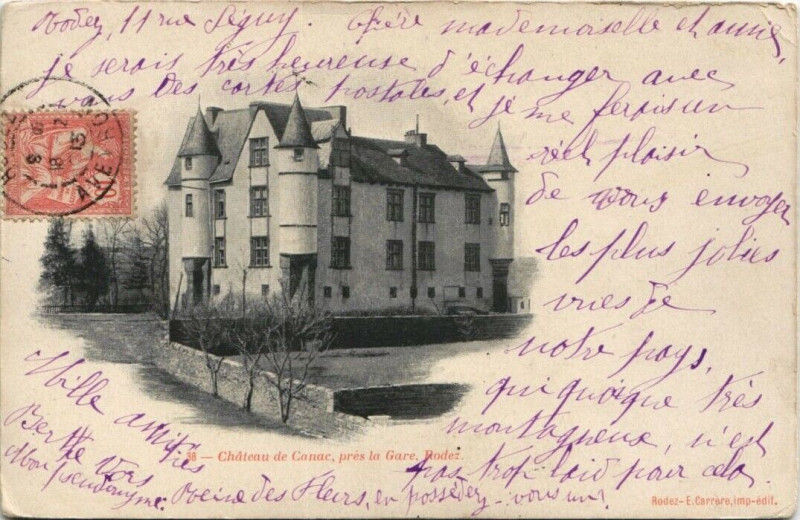 Rodez, 11 rue Séguy. Chère mademoiselle et amie,
je serais très heureuse d'échanger avec
vous des cartes postales, et je me ferais un
réel plaisir
de vous envoyer
les plus jolies
vues de
notre pays,
qui quoique très
montagneux, n'est
pas trop laid pour cela.
Mille amitiés
Berthe Vors
Mon pseudonyme: Reine des Fleurs, en possédez-vous un?
38 — Château de Canac, près la Gare, Rodez.
Rodez-E. Carrère, imp-édit.